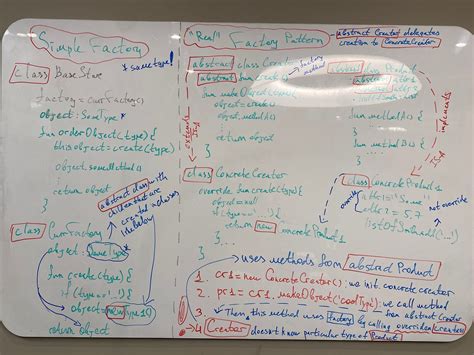 Simple Factory
* some type!
class BaseStore
factory = CurrFactory()
object: SomeType
fun orderObject(type) {
this.object = create(type)
object.someMethod()
return object
}
abstract class with
children that are
created a classes
like below
class CurrFactory
object: SomeType
fun create(type) {
if (type = ...!)
object = new Type1()
}
return object
"Real" Factory Pattern
- abstract Creator delegates
creation to ConcreteCreator
abstract class Creator
abstract fun create
factory
method
fun makeObject(type) {
object = create(
object.method()
return object
}
extends
abstract class Product
abstract
fun methodA() {
}
fun methodB() {
}
implements
class ConcreteCreator
override fun create(type) {
object = null
if (type == ...!)
return new ConcreteProduct1
}
class ConcreteProduct1
override
not override
attr2 = 57
uses methods from abstract Product
1. cr1 = new ConcreteCreator() : we init. concrete creator
2. pr1 = cr1.makeObject('coolType): we call method
from abstract Creator
3. Then, this method uses factory by calling overriden create()
4. Creator doesn't know particular type of Product